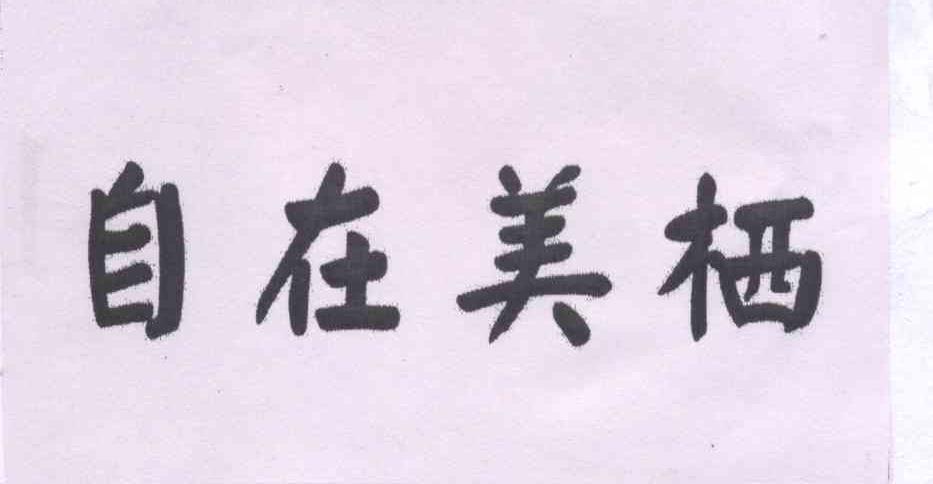 自在美栖